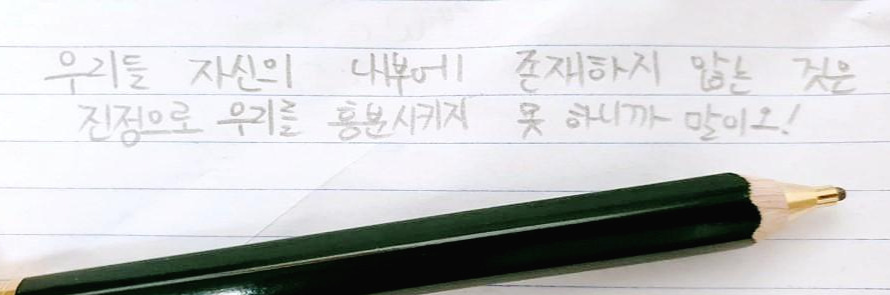 우리들 자신의 내부에 존재하지 않는 것은
진정으로 우리를 흥분시키지 못 하니까 말이오!